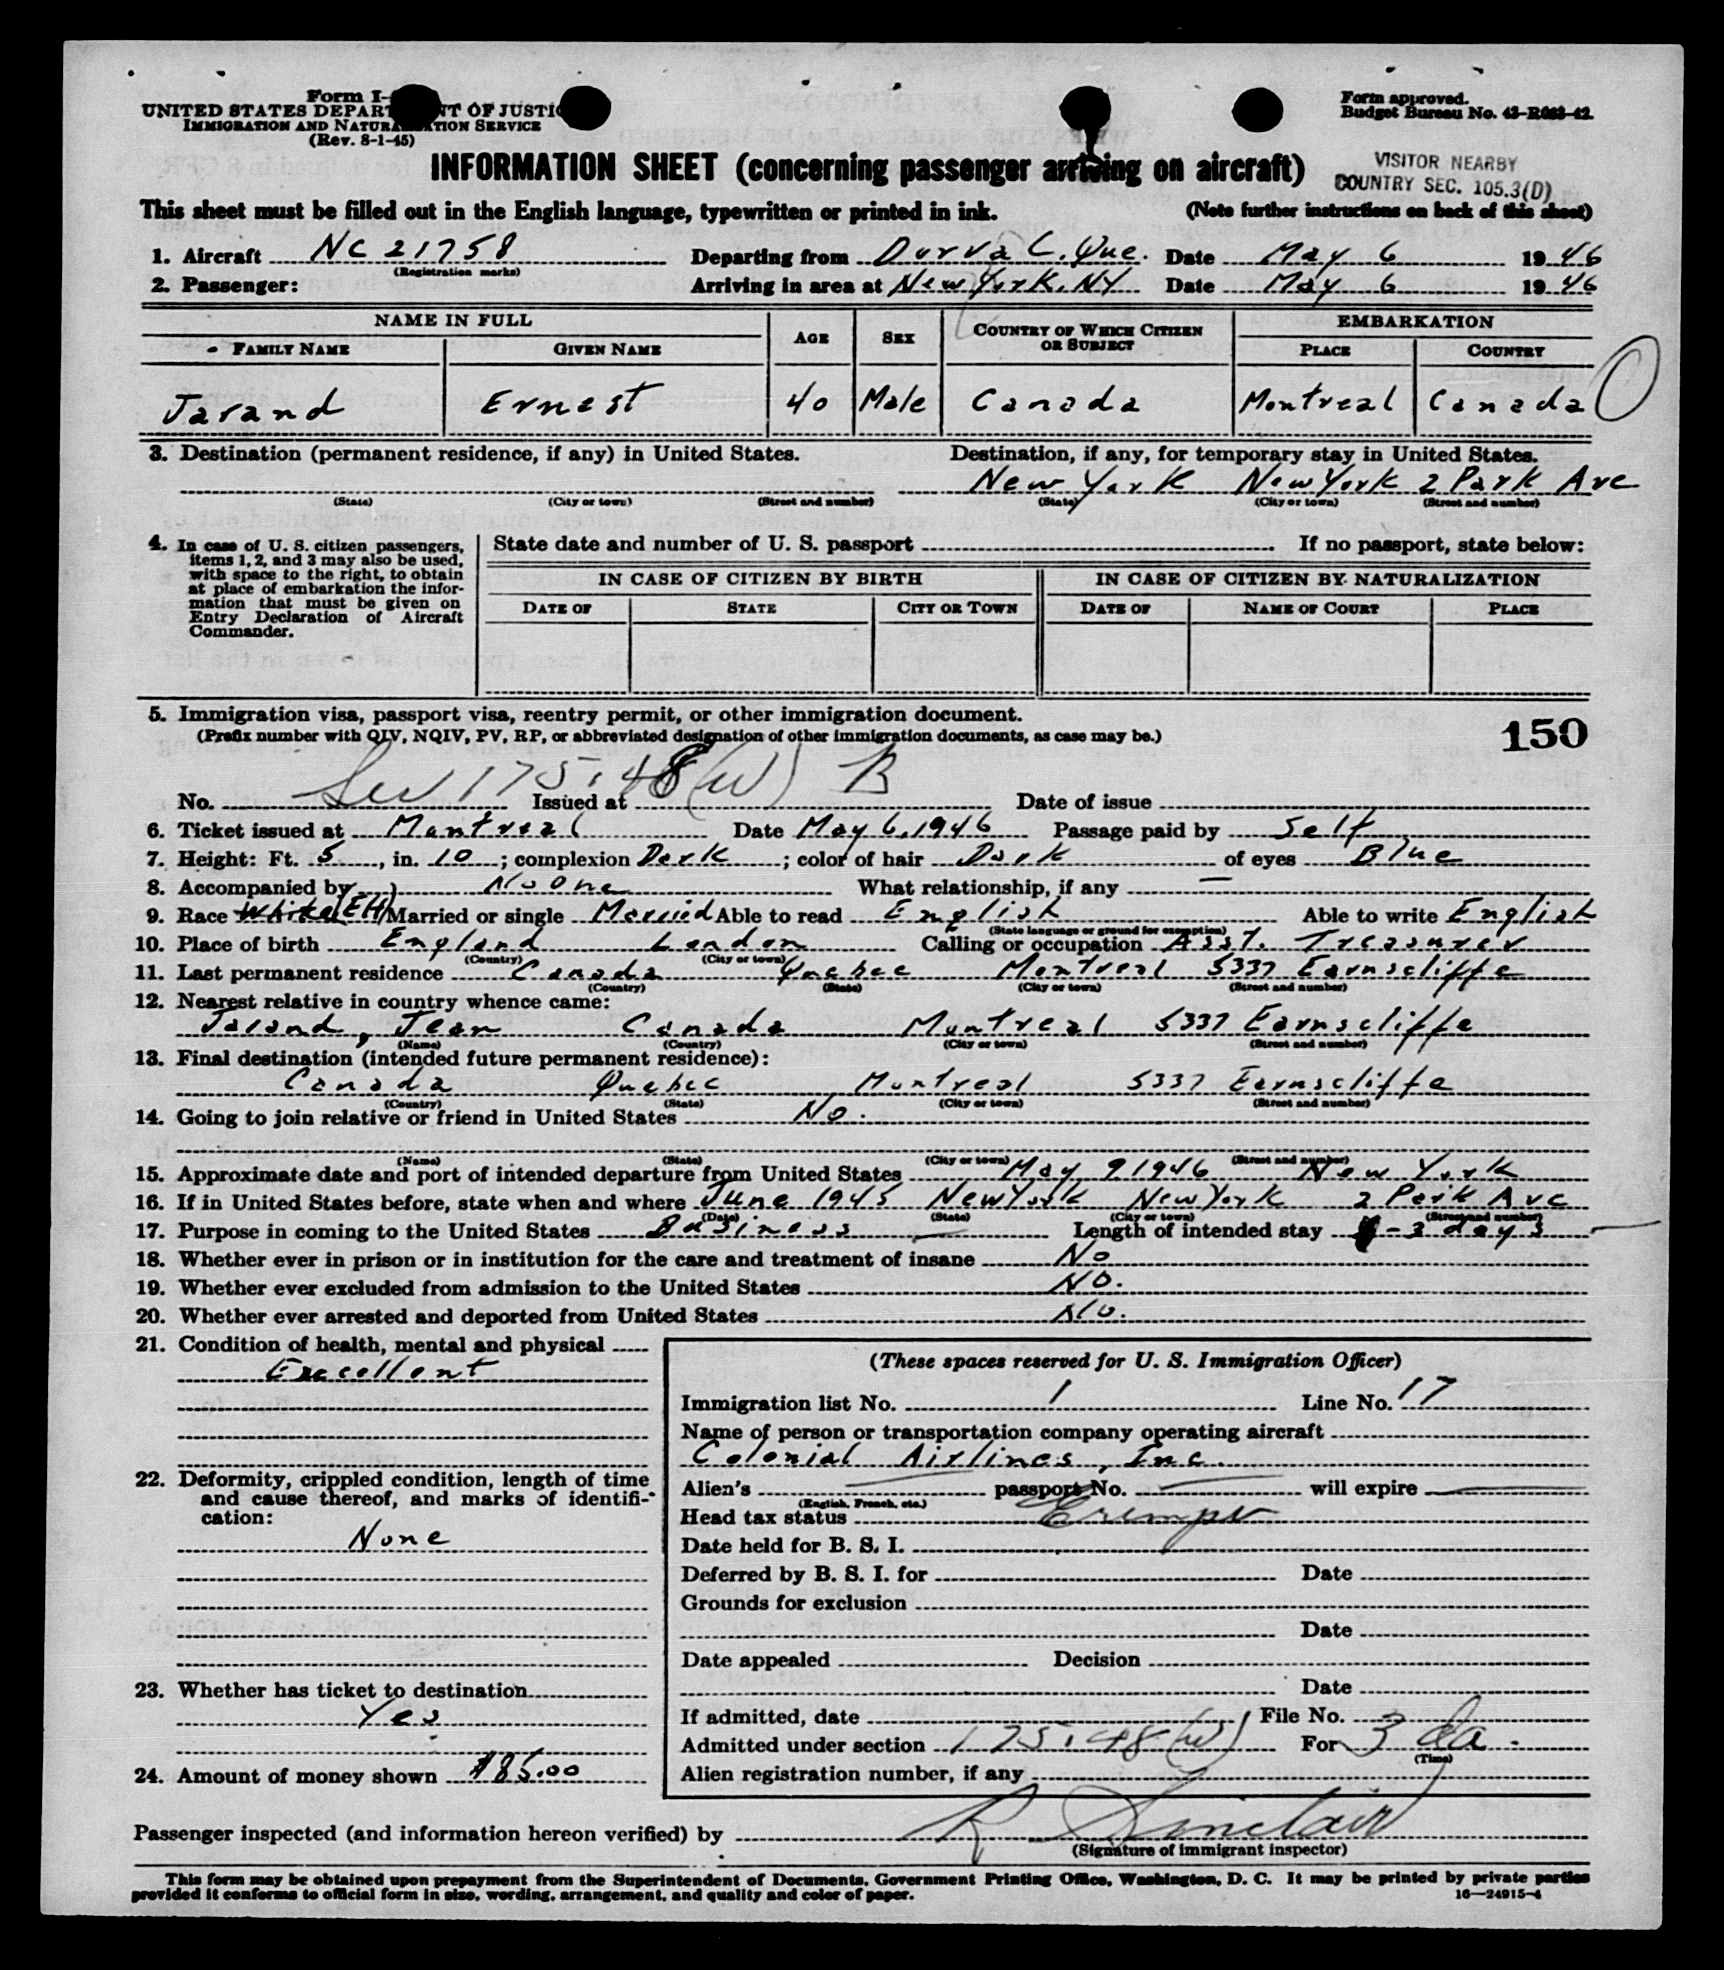 Form I-
UNITED STATES DEPART NT OF JUSTIC
IMMIGRATION AND NATURALIZATION SERVICE
(Rev. 8-1-45)
Form approved.
Budget Bureau No. 43-R083-42.
INFORMATION SHEET (concerning passenger arriving on aircraft)
VISITOR NEARBY
COUNTRY SEC. 105.3(D)
This sheet must be filled out in the English language, typewritten or printed in ink. (Note further instructions on back of this sheet)
1. Aircraft NC 21758 Departing from Dorval, Que. Date May 6 1946
(Registration marks)
2. Passenger: Arriving in area at New York, NY Date May 6 1946
NAME IN FULL AGE SEX COUNTRY OF WHICH CITIZEN OR SUBJECT EMBARKATION
FAMILY NAME GIVEN NAME PLACE COUNTRY
Jarand Ernest 40 Male Canada Montreal Canada
3. Destination (permanent residence, if any) in United States. Destination, if any, for temporary stay in United States.
New York New York 2 Park Ave
(State) (City or town) (Street and number) (State) (City or town) (Street and number)
4. In case of U. S. citizen passengers, items 1, 2, and 3 may also be used, with space to the right, to obtain at place of embarkation the information that must be given on Entry Declaration of Aircraft Commander.
State date and number of U. S. passport If no passport, state below:
IN CASE OF CITIZEN BY BIRTH IN CASE OF CITIZEN BY NATURALIZATION
DATE OF STATE CITY OR TOWN DATE OF NAME OF COURT PLACE
5. Immigration visa, passport visa, reentry permit, or other immigration document.
(Prefix number with QIV, NQIV, PV, RP, or abbreviated designation of other immigration documents, as case may be.)
150
Sec 175.48(w) B
No. Issued at Date of issue
6. Ticket issued at Montreal Date May 6, 1946 Passage paid by Self
7. Height: Ft. 5, in. 10; complexion Dark; color of hair Dark of eyes Blue
8. Accompanied by No one What relationship, if any —
9. Race White (EH) Married or single Married Able to read English Able to write English
(State language or ground for exemption)
10. Place of birth England London Calling or occupation Asst. Treasurer
(Country) (City or town)
11. Last permanent residence Canada Quebec Montreal 5337 Earnscliffe
(Country) (State) (City or town) (Street and number)
12. Nearest relative in country whence came:
Jarand, Jean Canada Montreal 5337 Earnscliffe
(Name) (Country) (City or town) (Street and number)
13. Final destination (intended future permanent residence):
Canada Quebec Montreal 5337 Earnscliffe
(Country) (State) (City or town) (Street and number)
14. Going to join relative or friend in United States No.
(Name) (State) (City or town) (Street and number)
15. Approximate date and port of intended departure from United States May 9 1946 New York
16. If in United States before, state when and where June 1945 New York New York 2 Park Ave
(Date) (State) (City or town) (Street and number)
17. Purpose in coming to the United States Business Length of intended stay - 3 days
18. Whether ever in prison or in institution for the care and treatment of insane No
19. Whether ever excluded from admission to the United States No.
20. Whether ever arrested and deported from United States No.
21. Condition of health, mental and physical
Excellent
22. Deformity, crippled condition, length of time and cause thereof, and marks of identification:
None
23. Whether has ticket to destination
Yes
24. Amount of money shown $85.00
(These spaces reserved for U. S. Immigration Officer)
Immigration list No. 1 Line No. 17
Name of person or transportation company operating aircraft
Colonial Airlines, Inc.
Alien's — passport No. — will expire —
(English, French, etc.)
Head tax status Exempt
Date held for B. S. I.
Deferred by B. S. I. for Date
Grounds for exclusion
Date
Date appealed Decision
Date
If admitted, date File No.
Admitted under section 175.48(w) For 3 da.
(Time)
Alien registration number, if any
Passenger inspected (and information hereon verified) by R Sinclair
(Signature of immigrant inspector)
This form may be obtained upon prepayment from the Superintendent of Documents, Government Printing Office, Washington, D. C. It may be printed by private parties
provided it conforms to official form in size, wording, arrangement, and quality and color of paper. 16—24915-4